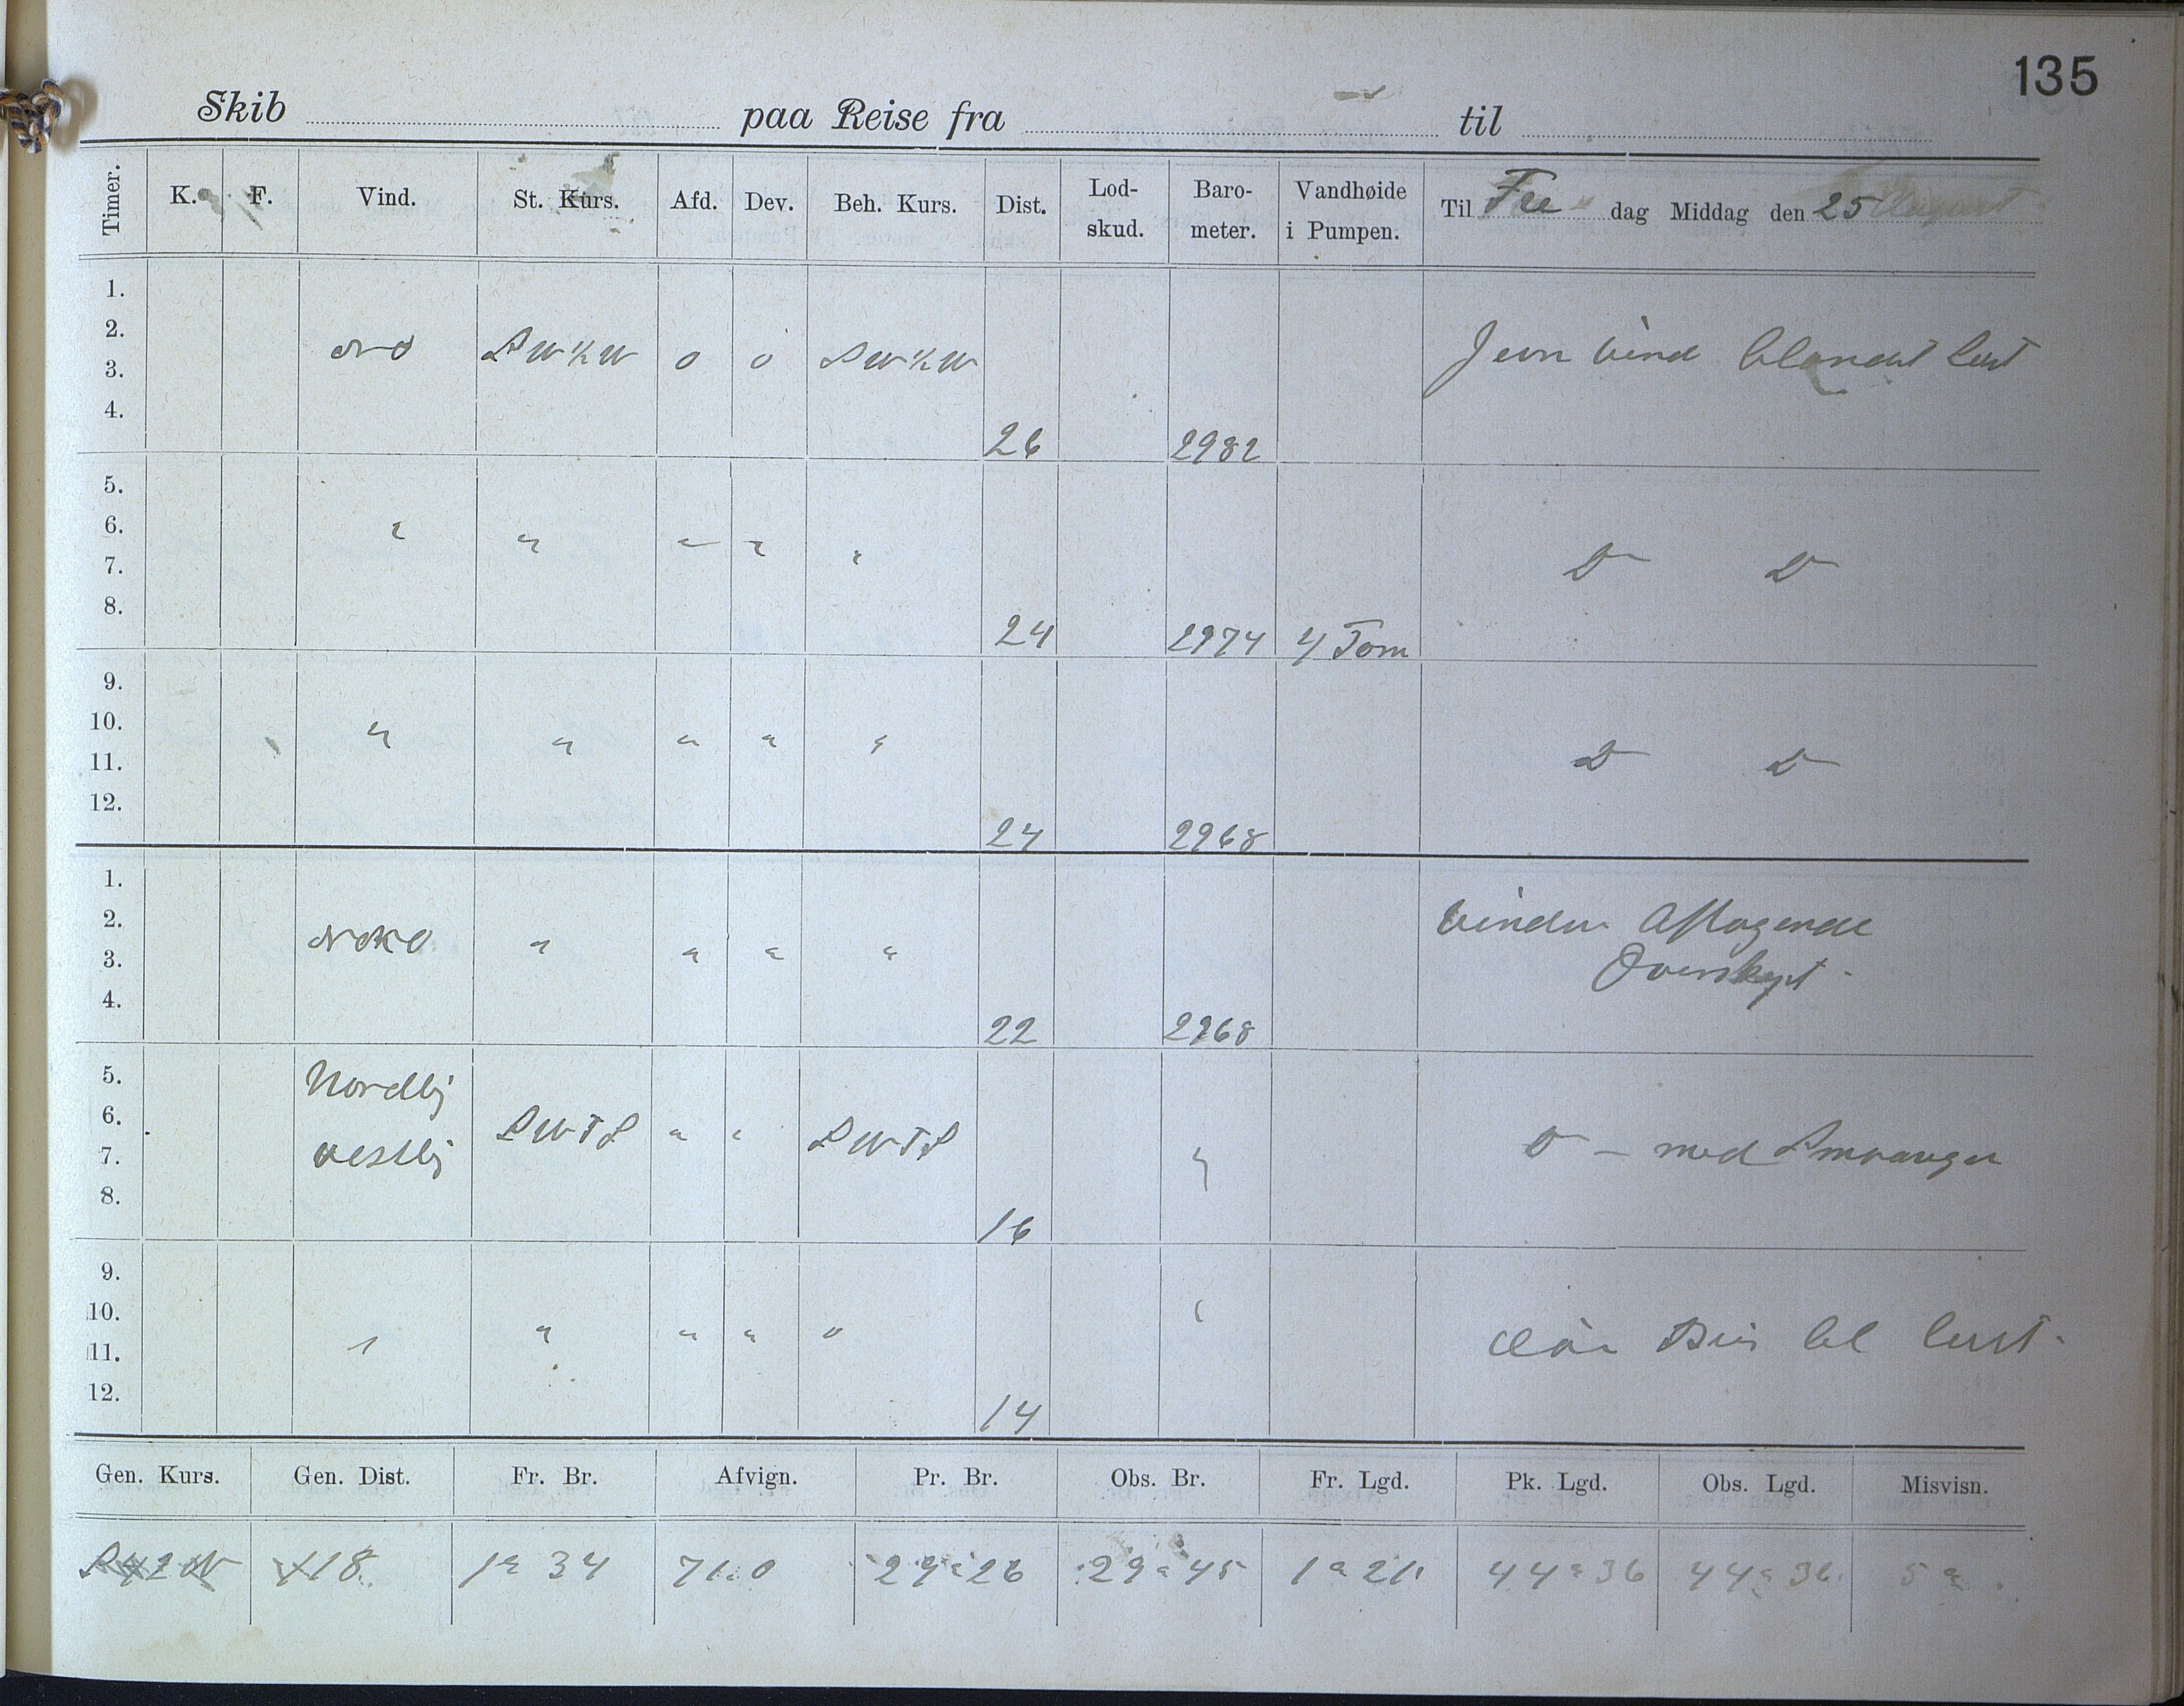 135
Skib paa Reise fra til
Timer. K. F. Vind. St. Kurs. Afd. Dev. Beh. Kurs. Dist. Lod-skud. Baro-meter. Vandhøide i Pumpen. Til Fre dag Middag den 25 August
1.
2.
NO SW½W 0 0 SW½W Jevn vind blandet luft
3.
4.
26 2982
5.
6.
" " " " " D D
7.
8.
24 2974 4 Tom
9.
10.
" " " " " D D
11.
12.
24 2968
1.
2.
Vinden Aftagende
NOKO " " " "
3.
Overskyet
4.
22 2968
5.
Nordlig
6.
SWTS " " SWTS " D - med
7.
vestlig
8.
16
9.
10.
" " " " " "
11.
Klar luft
12.
14
Gen. Kurs. Gen. Dist. Fr. Br. Afvign. Pr. Br. Obs. Br. Fr. Lgd. Pk. Lgd. Obs. Lgd. Misvisn.
S42W 118 1° 34 71.0 29° 26 29° 45 1° 21 44° 36 44° 36 5°